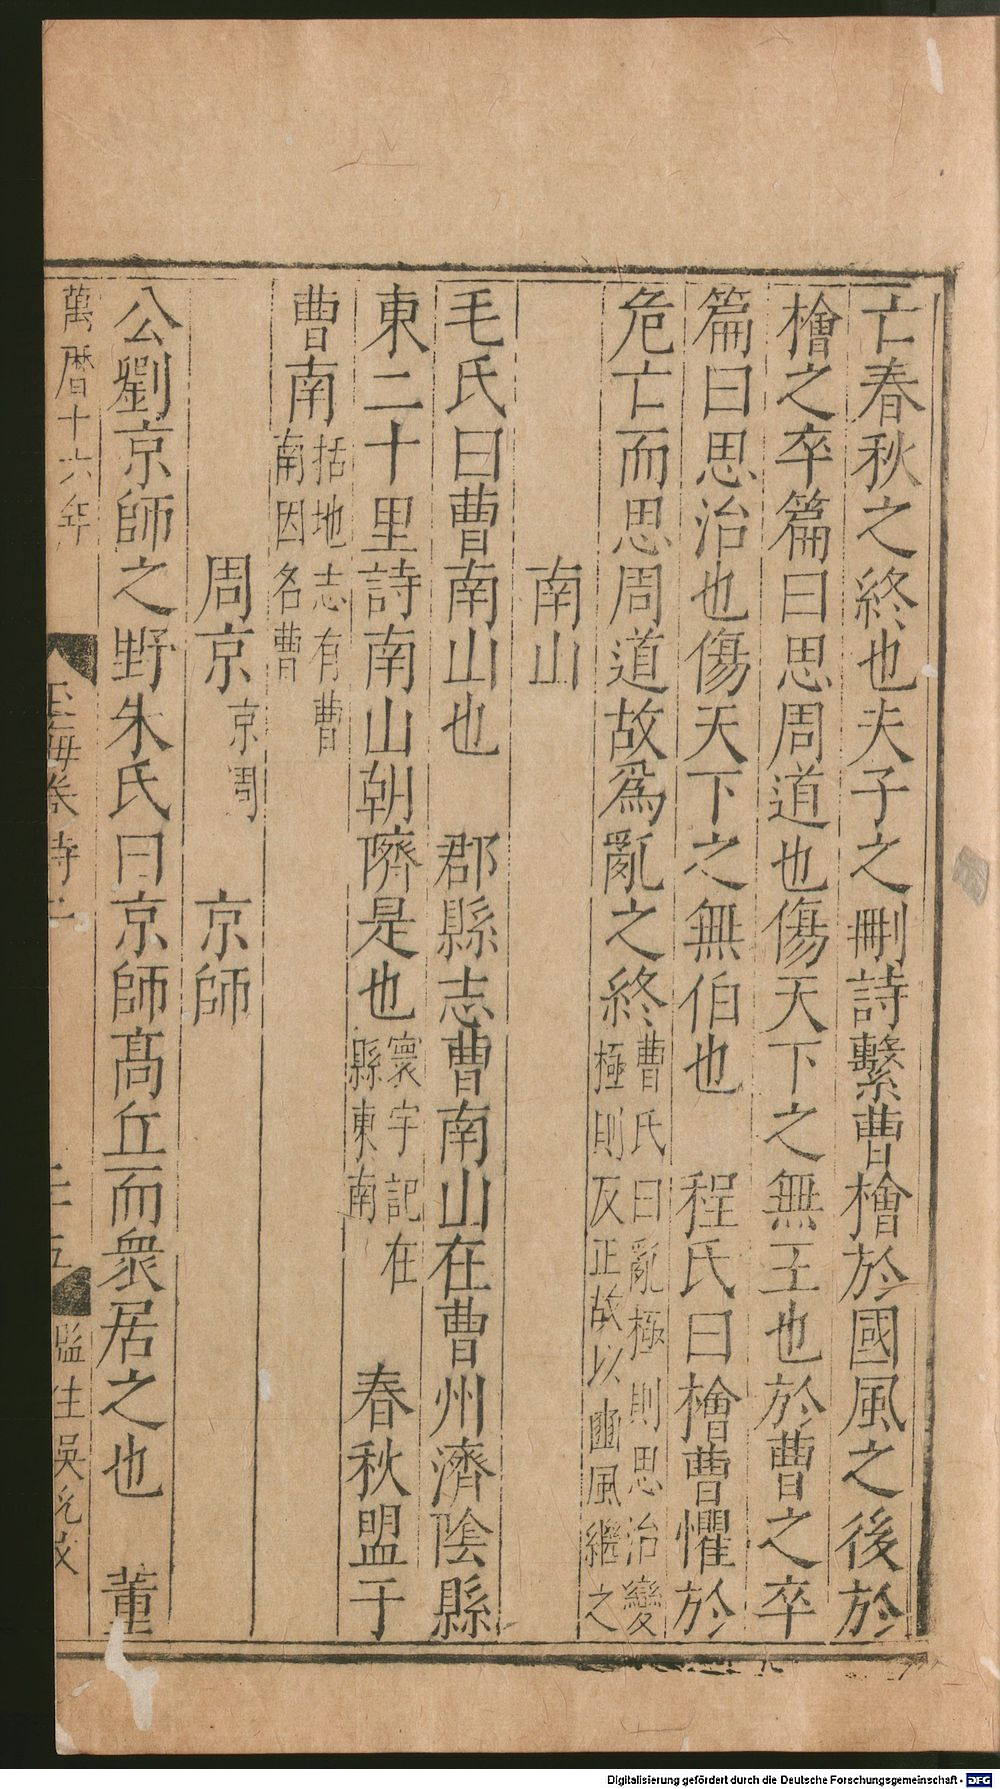 亡春秋之終也夫子之刪詩繫曹檜於國風之後於
檜之卒篇曰思周道也傷天下之無王也於曹之卒
篇曰思治也傷天下之無伯也　程氏曰檜曹懼於
危亡而思周道故爲亂之終曹氏曰亂極則思治變極則反正故以豳風繼之
南山
毛氏曰曹南山也　郡縣志曹南山在曹州濟陰縣
東二十里詩南山朝隮是也寰宇記在縣東南　春秋盟于
曹南括地志有曹南因名曹
周京京周　京師
公劉京師之野朱氏曰京師髙丘而衆居之也　董
萬曆十六年　玉海卷詩　二十五　監生吳
Digitalisierung gefördert durch die Deutsche Forschungsgemeinschaft - DFG